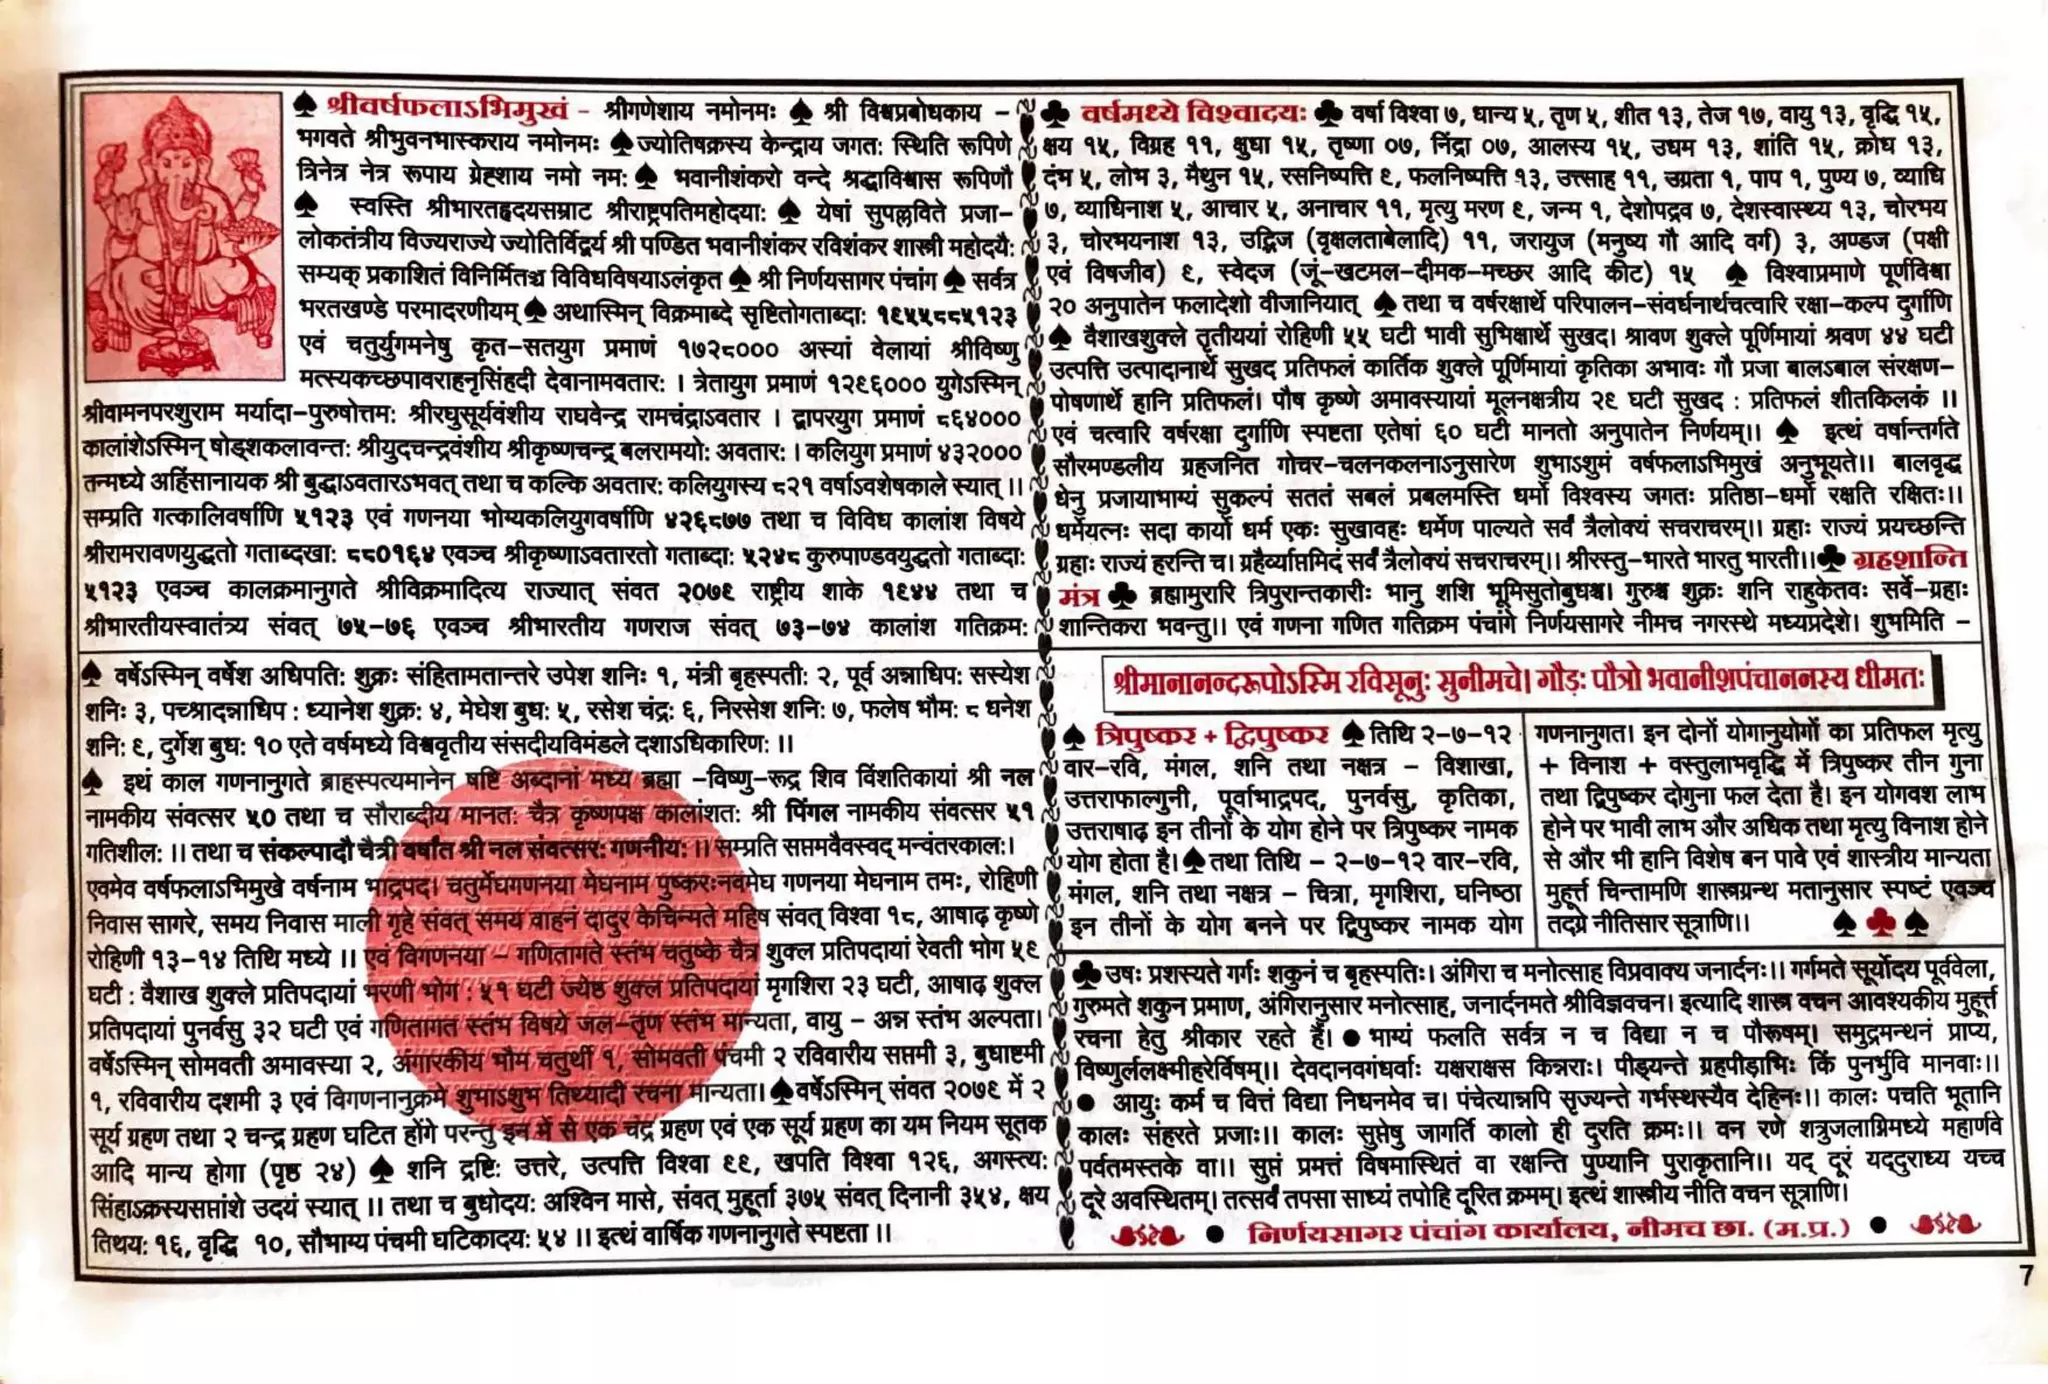 ♠ श्रीवर्षफलाऽभिमुखं - श्रीगणेशाय नमोनमः ♠ श्री विश्वप्रबोधकाय -
भगवते श्रीभुवनभास्कराय नमोनमः ♠ ज्योतिषक्रस्य केन्द्राय जगतः स्थिति रूपिणे
त्रिनेत्र नेत्र रूपाय ग्रेह्शाय नमो नमः ♠ भवानीशंकरो वन्दे श्रद्धाविश्वास रूपिणौ
♠ स्वस्ति श्रीभारतहृदयसम्राट श्रीराष्ट्रपतिमहोदयाः ♠ येषां सुपल्लविते प्रजा-
लोकतंत्रीय विज्यराज्ये ज्योतिर्विद्वर्य श्री पण्डित भवानीशंकर रविशंकर शास्त्री महोदयैः
सम्यक् प्रकाशितं विनिर्मितञ्च विविधविषयाऽलंकृत ♠ श्री निर्णयसागर पंचांग ♠ सर्वत्र
भरतखण्डे परमादरणीयम् ♠ अथास्मिन् विक्रमाब्दे सृष्टितोगताब्दाः १९५५८८५१२३
एवं चतुर्युगमनेषु कृत-सतयुग प्रमाणं १७२८००० अस्यां वेलायां श्रीविष्णु
मत्स्यकच्छपावराहनृसिंहदी देवानामवतारः । त्रेतायुग प्रमाणं १२९६००० युगेऽस्मिन्
श्रीवामनपरशुराम मर्यादा-पुरुषोत्तमः श्रीरघुसूर्यवंशीय राघवेन्द्र रामचंद्राऽवतार । द्वापरयुग प्रमाणं ८६४०००
कालांशेऽस्मिन् षोड्शकलावन्तः श्रीयुदचन्द्रवंशीय श्रीकृष्णचन्द्र बलरामयोः अवतारः । कलियुग प्रमाणं ४३२०००
तन्मध्ये अहिंसानायक श्री बुद्धाऽवतारऽभवत् तथा च कल्कि अवतारः कलियुगस्य ८२१ वर्षाऽवशेषकाले स्यात् ॥
सम्प्रति गत्कालिवर्षाणि ५१२३ एवं गणनया भोग्यकलियुगवर्षाणि ४२६८७७ तथा च विविध कालांश विषये
श्रीरामरावणयुद्धतो गताब्दखाः ८८०१६४ एवञ्च श्रीकृष्णाऽवतारतो गताब्दाः ५२४८ कुरुपाण्डवयुद्धतो गताब्दाः
५१२३ एवञ्च कालक्रमानुगते श्रीविक्रमादित्य राज्यात् संवत २०७९ राष्ट्रीय शाके १९४४ तथा च
श्रीभारतीयस्वातंत्र्य संवत् ७५-७६ एवञ्च श्रीभारतीय गणराज संवत् ७३-७४ कालांश गतिक्रमः
♠ वर्षेऽस्मिन् वर्षेश अधिपतिः शुक्रः संहितामतान्तरे उपेश शनिः १, मंत्री बृहस्पतीः २, पूर्व अन्नाधिपः सस्येश
शनिः ३, पच्श्रादन्नाधिप : ध्यानेश शुक्रः ४, मेघेश बुधः ५, रसेश चंद्रः ६, निरसेश शनिः ७, फलेष भौमः ८ धनेश
शनिः ९, दुर्गेश बुधः १० एते वर्षमध्ये विश्ववृतीय संसदीयविमंडले दशाऽधिकारिणः ॥
♠ इथं काल गणनानुगते ब्राहस्पत्यमानेन षष्टि अब्दानां मध्य ब्रह्मा -विष्णु-रूद्र शिव विंशतिकायां श्री नल
नामकीय संवत्सर ५० तथा च सौराब्दीय मानतः चैत्र कृष्णपक्ष कालांशतः श्री पिंगल नामकीय संवत्सर ५१
गतिशीलः ॥ तथा च संकल्पादौ चैत्री वर्षांत श्री नल संवत्सरः गणनीयः ॥ सम्प्रति सप्तमवैवस्वद् मन्वंतरकालः।
एवमेव वर्षफलाऽभिमुखे वर्षनाम भाद्रपद। चतुर्मेघगणनया मेघनाम पुष्करःनवमेघ गणनया मेघनाम तमः, रोहिणी
निवास सागरे, समय निवास माली गृहे संवत् समय वाहनं दादुर केचिन्मते महिष संवत् विश्वा १८, आषाढ़ कृष्णे
रोहिणी १३-१४ तिथि मध्ये ॥ एवं विगणनया - गणितागते स्तंभ चतुष्के चैत्र शुक्ल प्रतिपदायां रेवती भोग ५९
घटी : वैशाख शुक्ले प्रतिपदायां भरणी भोग : ५१ घटी ज्येष्ठ शुक्ल प्रतिपदायां मृगशिरा २३ घटी, आषाढ़ शुक्ल
प्रतिपदायां पुनर्वसु ३२ घटी एवं गणितागत स्तंभ विषये जल-तृण स्तंभ मान्यता, वायु - अन्न स्तंभ अल्पता।
वर्षेऽस्मिन् सोमवती अमावस्या २, अंगारकीय भौम चतुर्थी १, सोमवती पंचमी २ रविवारीय सप्तमी ३, बुधाष्टमी
१, रविवारीय दशमी ३ एवं विगणनानुक्रमे शुभाऽशुभ तिथ्यादी रचना मान्यता। ♠ वर्षेऽस्मिन् संवत २०७९ में २
सूर्य ग्रहण तथा २ चन्द्र ग्रहण घटित होंगे परन्तु इन में से एक चंद्र ग्रहण एवं एक सूर्य ग्रहण का यम नियम सूतक
आदि मान्य होगा (पृष्ठ २४) ♠ शनि द्रष्टिः उत्तरे, उत्पत्ति विश्वा ९९, खपति विश्वा १२६, अगस्त्यः
सिंहाऽक्रस्यसप्तांशे उदयं स्यात् ॥ तथा च बुधोदयः अश्विन मासे, संवत् मुहूर्ता ३७५ संवत् दिनानी ३५४, क्षय
तिथयः १६, वृद्धि १०, सौभाग्य पंचमी घटिकादयः ५४ ॥ इत्थं वार्षिक गणनानुगते स्पष्टता ॥
♣ वर्षमध्ये विश्वादयः ♣ वर्षा विश्वा ७, धान्य ५, तृण ५, शीत १३, तेज १७, वायु १३, वृद्धि १५,
क्षय १५, विग्रह ११, क्षुधा १५, तृष्णा ०७, निंद्रा ०७, आलस्य १५, उधम १३, शांति १५, क्रोध १३,
दंभ ५, लोभ ३, मैथुन १५, रसनिष्पत्ति ९, फलनिष्पत्ति १३, उत्त्साह ११, उग्रता १, पाप १, पुण्य ७, व्याधि
७, व्याधिनाश ५, आचार ५, अनाचार ११, मृत्यु मरण ९, जन्म १, देशोपद्रव ७, देशस्वास्थ्य १३, चोरभय
३, चोरभयनाश १३, उद्भिज (वृक्षलताबेलादि) ११, जरायुज (मनुष्य गौ आदि वर्ग) ३, अण्डज (पक्षी
एवं विषजीव) ९, स्वेदज (जूं-खटमल-दीमक-मच्छर आदि कीट) १५ ♠ विश्वाप्रमाणे पूर्णविश्वा
२० अनुपातेन फलादेशो वीजानियात् ♠ तथा च वर्षरक्षार्थे परिपालन-संवर्धनार्थचत्वारि रक्षा-कल्प दुर्गाणि
♠ वैशाखशुक्ले तृतीययां रोहिणी ५५ घटी भावी सुभिक्षार्थे सुखद। श्रावण शुक्ले पूर्णिमायां श्रवण ४४ घटी
उत्पत्ति उत्पादानार्थे सुखद प्रतिफलं कार्तिक शुक्ले पूर्णिमायां कृतिका अभावः गौ प्रजा बालऽबाल संरक्षण-
पोषणार्थे हानि प्रतिफलं। पौष कृष्णे अमावस्यायां मूलनक्षत्रीय २९ घटी सुखद : प्रतिफलं शीतकिलकं ॥
एवं चत्वारि वर्षरक्षा दुर्गाणि स्पष्टता एतेषां ६० घटी मानतो अनुपातेन निर्णयम्॥ ♠ इत्थं वर्षान्तर्गते
सौरमण्डलीय ग्रहजनित गोचर-चलनकलनाऽनुसारेण शुभाऽशुमं वर्षफलाऽभिमुखं अनुभूयते॥ बालवृद्ध
धेनु प्रजायाभाग्यं सुकल्पं सततं सबलं प्रबलमस्ति धर्मो विश्वस्य जगतः प्रतिष्ठा-धर्मो रक्षति रक्षितः॥
धर्मेयत्नः सदा कार्यो धर्म एकः सुखावहः धर्मेण पाल्यते सर्वं त्रैलोक्यं सचराचरम्॥ ग्रहाः राज्यं प्रयच्छन्ति
ग्रहाः राज्यं हरन्ति च। ग्रहैर्व्याप्तमिदं सर्वं त्रैलोक्यं सचराचरम्॥ श्रीरस्तु-भारते भारतु भारती॥ ♣ ग्रहशान्ति
मंत्र ♣ ब्रह्मामुरारि त्रिपुरान्तकारीः भानु शशि भूमिसुतोबुधश्च। गुरुश्च शुक्रः शनि राहुकेतवः सर्वे-ग्रहाः
शान्तिकरा भवन्तु॥ एवं गणना गणित गतिक्रम पंचांगे निर्णयसागरे नीमच नगरस्थे मध्यप्रदेशे। शुभमिति -
श्रीमानानन्दरूपोऽस्मि रविसूनुः सुनीमचे। गौड़ः पौत्रो भवानीशपंचाननस्य धीमतः
♠ त्रिपुष्कर + द्विपुष्कर ♠ तिथि २-७-१२
वार-रवि, मंगल, शनि तथा नक्षत्र - विशाखा,
उत्तराफाल्गुनी, पूर्वाभाद्रपद, पुनर्वसु, कृतिका,
उत्तराषाढ़ इन तीनों के योग होने पर त्रिपुष्कर नामक
योग होता है। ♠ तथा तिथि - २-७-१२ वार-रवि,
मंगल, शनि तथा नक्षत्र - चित्रा, मृगशिरा, घनिष्ठा
इन तीनों के योग बनने पर द्विपुष्कर नामक योग
गणनानुगत। इन दोनों योगानुयोगों का प्रतिफल मृत्यु
+ विनाश + वस्तुलाभवृद्धि में त्रिपुष्कर तीन गुना
तथा द्विपुष्कर दोगुना फल देता है। इन योगवश लाभ
होने पर भावी लाभ और अधिक तथा मृत्यु विनाश होने
से और भी हानि विशेष बन पावे एवं शास्त्रीय मान्यता
मुहूर्त्त चिन्तामणि शास्त्रग्रन्थ मतानुसार स्पष्टं एवञ्च
तदग्रे नीतिसार सूत्राणि॥ ♠ ♣ ♠
♣ उषः प्रशस्यते गर्गः शकुनं च बृहस्पतिः। अंगिरा च मनोत्साह विप्रवाक्य जनार्दनः॥ गर्गमते सूर्योदय पूर्ववेला,
गुरुमते शकुन प्रमाण, अंगिरानुसार मनोत्साह, जनार्दनमते श्रीविज्ञवचन। इत्यादि शास्त्र वचन आवश्यकीय मुहूर्त्त
रचना हेतु श्रीकार रहते हैं। ● भाग्यं फलति सर्वत्र न च विद्या न च पौरूषम्। समुद्रमन्थनं प्राप्य,
विष्णुर्ललक्ष्मीहरेर्विषम्॥ देवदानवगंधर्वाः यक्षराक्षस किन्नराः। पीड्यन्ते ग्रहपीड़ाभिः किं पुनर्भुवि मानवाः॥
● आयुः कर्म च वित्तं विद्या निधनमेव च। पंचेत्यान्नपि सृज्यन्ते गर्भस्थस्यैव देहिनः॥ कालः पचति भूतानि
कालः संहरते प्रजाः॥ कालः सुप्तेषु जागर्ति कालो ही दुरति क्रमः॥ वन रणे शत्रुजलाग्निमध्ये महार्णवे
पर्वतमस्तके वा॥ सुप्तं प्रमत्तं विषमास्थितं वा रक्षन्ति पुण्यानि पुराकृतानि॥ यद् दूरं यद्दुराध्य यच्च
दूरे अवस्थितम्। तत्सर्वं तपसा साध्यं तपोहि दूरित क्रमम्। इत्थं शास्त्रीय नीति वचन सूत्राणि।
● निर्णयसागर पंचांग कार्यालय, नीमच छा. (म.प्र.) ●
7